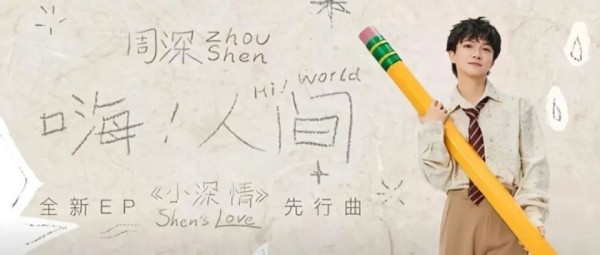 周深 Zhou Shen
Hi! World
嗨！人间
全新EP《小深情》先行曲
Shen's Love